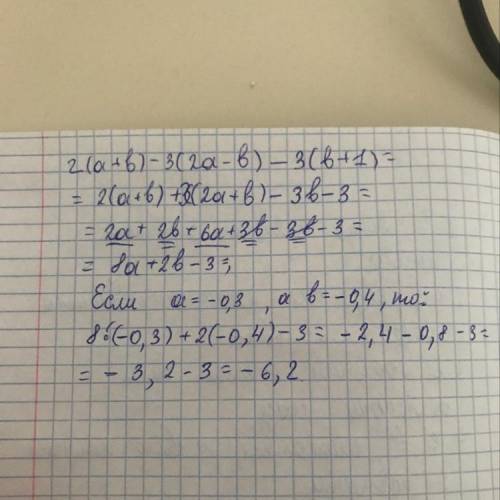 2(a+b)-3(2a-b)-3(b+1)=
=2(a+b)+3(2a+b)-3b-3=
=2a+2b+6a+3b-3b-3=
=8a+2b-3=,
Если a=-0,3, а b=-0,4, то:
8·(-0,3)+2(-0,4)-3=-2,4-0,8-3=
=-3,2-3=-6,2